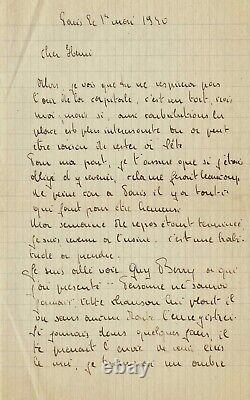 Paris le 1er mai 1940
Cher Henri
Alors je vois que tu ne respireras pas
l'air de la capitale, c'est un tort, crois
moi, mais si, une
place est plus interessante ou on peut
être
Pour ma part, je t'assure que si j'étais
obligé d'y revenir, cela me ferait beaucoup
de peine car à Paris il y a tout ce
qu'il faut pour être heureux
Mon semaine de repos étant terminée
je suis revenu à l'usine. c'est une habi-
tude à prendre.
Je suis allé voir Guy Berry à qui
j'ai présenté "Personne ne saurait
jamais" cette chanson lui plait il
va sans aucun doute l'enregistrer.
Si jamais dans quelques jours, il
te prenait l'envie de venir
le mai, je t'enverrai un
© 123